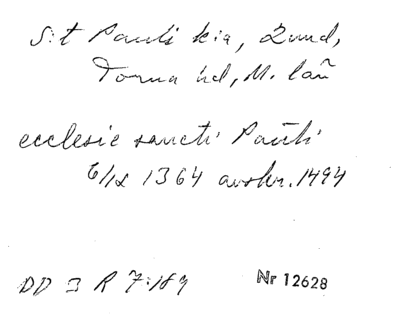 S:t Pauli k:a, Lund,
Torna hd, M. län
ecclesie sancti Pauli
6/12 1364 avskr. 1494
DD 3 R 7:189
Nr 12628